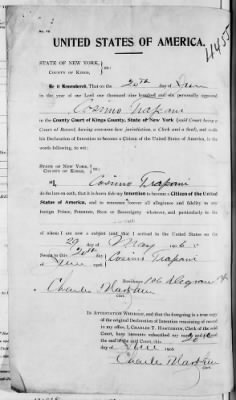 UNITED STATES OF AMERICA.
STATE OF NEW YORK,
COUNTY OF KINGS,
Be it Remembered, That on the 20th day June
in the year of our Lord one thousand nine hundred and six personally appeared
Cosimo Trapani
in the County Court of Kings County, State of New York (said Court being a
Court of Record, having common law jurisdiction, a Clerk and a Seal), and made
his Declaration of Intention to become a Citizen of the United States of America, in the
words following, to wit:
STATE OF NEW YORK,
COUNTY OF KINGS,
"I, Cosimo Trapani
do declare on oath, that it is bona fide my intention to become a Citizen of the United
States of America, and to renounce forever all allegiance and fidelity to any
foreign Prince, Potentate, State or Sovereignty whatever, and particularly to the
of whom I am now a subject (and that I arrived in the United States on the
29 day of May
Sworn to this 20th
day of June 1906
Cosimo Trapani
Residence 106
Charles
Clerk.
IN ATTESTATION WHEREOF, and that the foregoing is a true copy
of the original Declaration of Intention remaining of record
in my office, I, CHARLES T. HARTZHEIM, Clerk of the said
Court, have hereunto subscribed my name
the said Court, this 20
day of June 1906
Charles
Clerk.